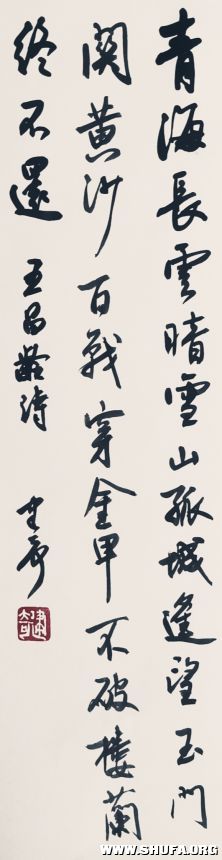 青海長雲暗雪山孤城遙望玉門
関黄沙百戰穿金甲不破樓蘭
終不還 王昌齡詩
WWW.SHUFA.ORG